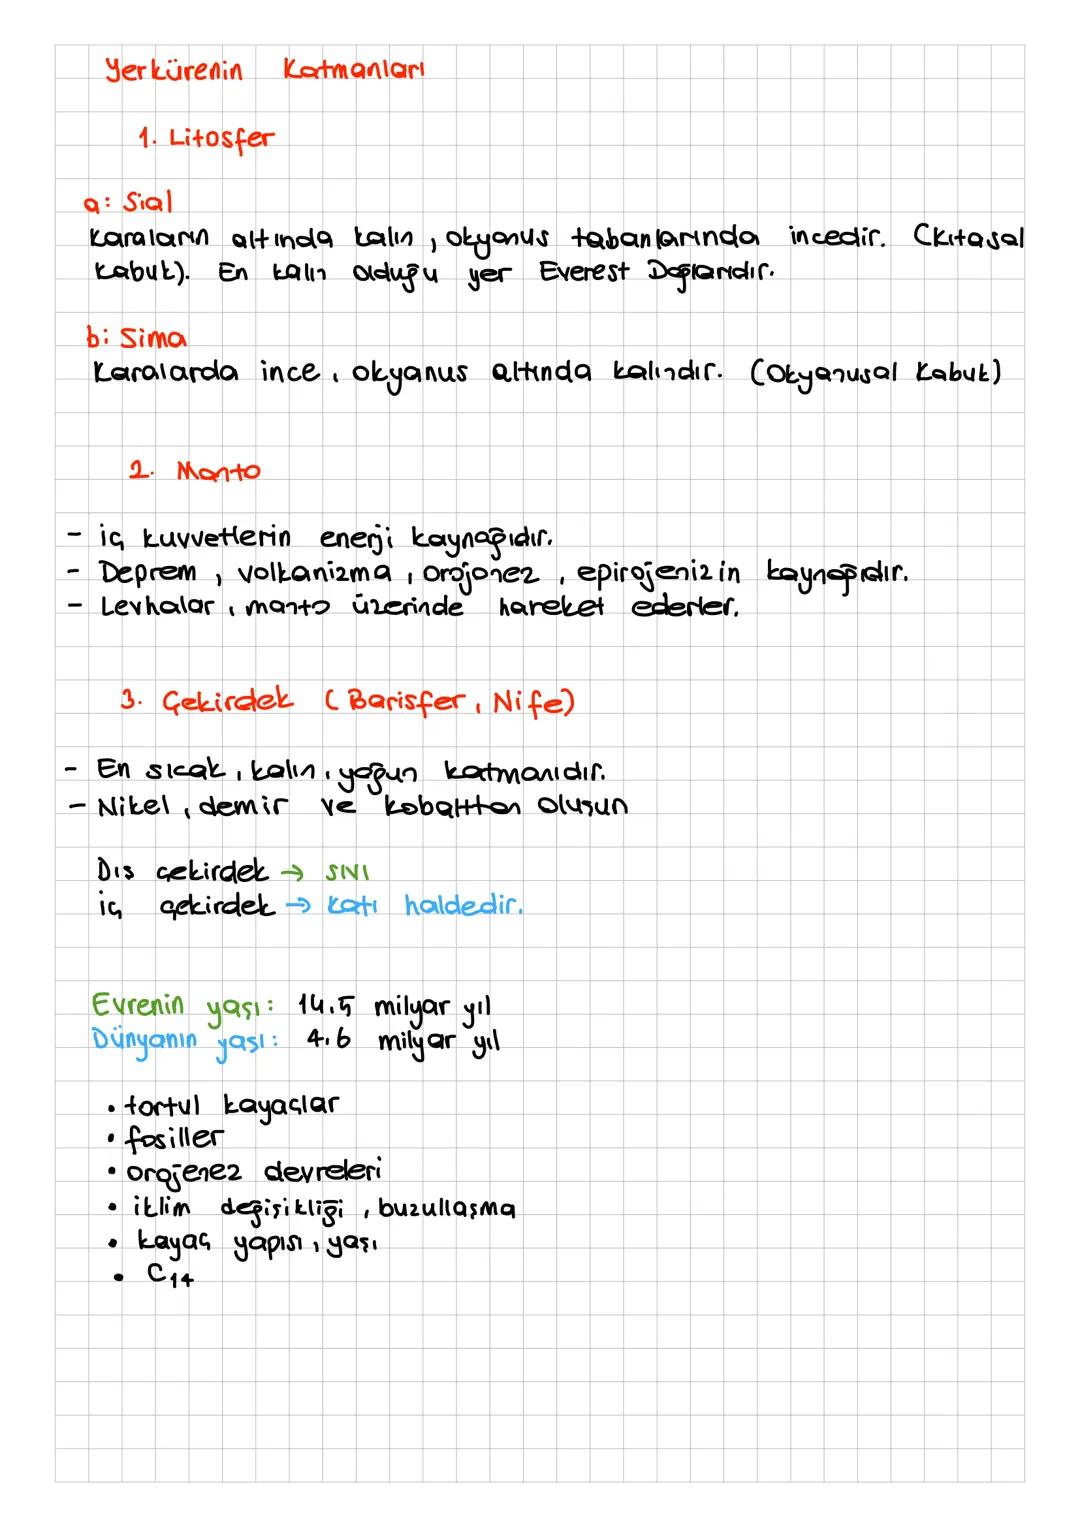 Yerkürenin Katmanları
1. Litosfer
a: Sial
Karaların altında kalın, okyanus tabanlarında incedir. (Kıtasal
Kabuk). En kalın olduğu yer Everest Dağlarıdır.
b: Sima
Karalarda ince, okyanus altında kalındır. (Okyanusal Kabuk)
2. Manto
- iç kuvvetlerin enerji kaynağıdır.
- Deprem, volkanizma, orojonez, epirojenizin kaynağıdır.
- Levhalar, manto üzerinde hareket ederler.
3. Çekirdek (Barisfer, Nife)
- En sıcak, kalın, yoğun katmanıdır.
- Nikel, demir ve kobalttan oluşun
Dış çekirdek → SIVI
iç çekirdek → katı haldedir.
Evrenin yaşı: 14,5 milyar yıl
Dünyanın yaşı: 4,6 milyar yıl
• tortul kayaçlar
• fosiller
• orojenez devreleri
• iklim değişikliği, buzullaşma
• kayaç yapısı, yaşı
• C14